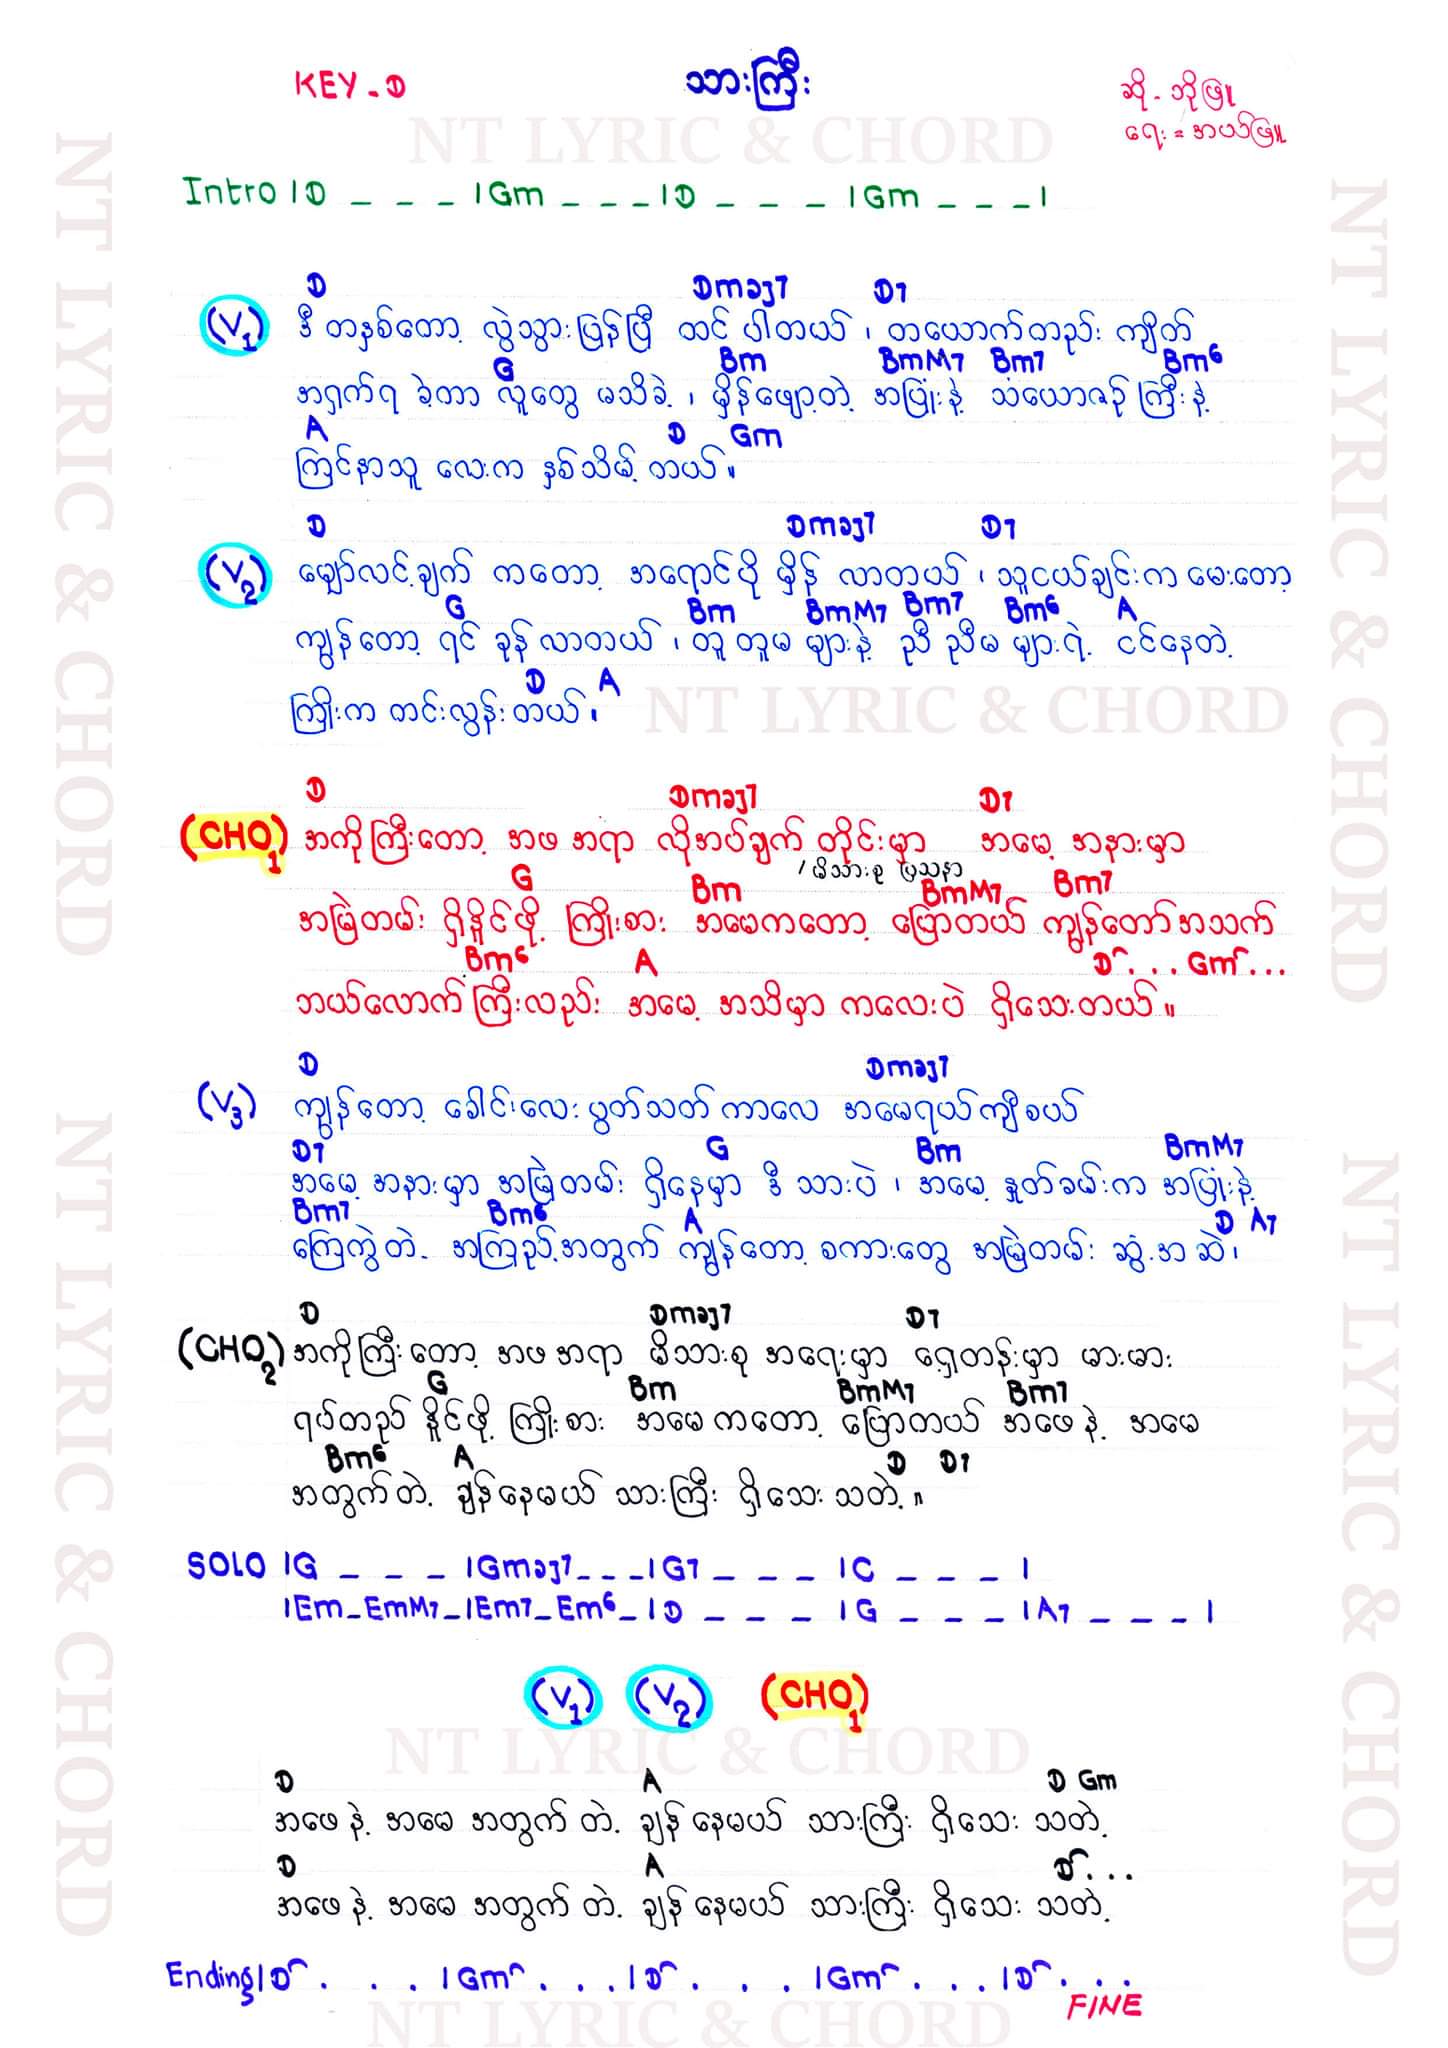 KEY - D
သားကြီး
ဆို - ဘိုဖြူ
ရေး = အယ်ဖြူ
NT LYRIC & CHORD
Intro | D _ _ _ | Gm _ _ _ | D _ _ _ | Gm _ _ _ |
D Dmaj7 D7
(V1) ဒီ တနှစ်တော့ လွဲသွားပြန်ပြီ ထင် ပါတယ် ၊ တယောက်တည်း ကျိတ်
G Bm BmM7 Bm7 Bm6
အရှက်ရ ခဲ့တာ လူတွေ မသိခဲ့ ၊ မှိန်ဖျော့တဲ့ အပြုံးနဲ့ သံယောဇဉ် ကြီးနဲ့
A D Gm
ကြင်နာသူ လေးက နှစ်သိမ့် တယ် ။
D Dmaj7 D7
(V2) မျှော်လင့်ချက် ကတော့ အရောင်ပို မှိန် လာတယ် ၊ သူငယ်ချင်းက မေးတော့
G Bm BmM7 Bm7 Bm6 A
ကျွန်တော့ ရင် ခုန် လာတယ် ၊ တူ တူမ များနဲ့ ညီ ညီမ များရဲ့ ငင်နေတဲ့
D A
ကြိုးက တင်းလွန်း တယ် ။
NT LYRIC & CHORD
D Dmaj7 D7
(CHO1) အကိုကြီးတော့ အဖ အရာ လိုအပ်ချက် တိုင်းမှာ အမေ့ အနားမှာ
/ မိသားစု ပြသနာ
G Bm BmM7 Bm7
အမြဲတမ်း ရှိနိူင်ဖို့ ကြိုးစား အမေကတော့ ပြောတယ် ကျွန်တော်အသက်
Bm6 A D . . . Gm . . .
ဘယ်လောက် ကြီးလည်း အမေ့ အသိမှာ ကလေးပဲ ရှိသေးတယ် ။
D Dmaj7
(V3) ကျွန်တော့ ခေါင်းလေး ပွတ်သတ် ကာလေ အမေရယ်ကျီစယ်
D7 G Bm BmM7
အမေ့ အနားမှာ အမြဲတမ်း ရှိနေမှာ ဒီ သားပဲ ၊ အမေ့ နှုတ်ခမ်းက အပြုံးနဲ့
Bm7 Bm6 A D A7
ကြေကွဲတဲ့ အကြည့်အတွက် ကျွန်တော့ စကားတွေ အမြဲတမ်း ဆွံ့အ ဆဲ၊
D Dmaj7 D7
(CHO2) အကိုကြီး တော့ အဖ အရာ မိသားစု အရေးမှာ ရှေ့တန်းမှာ မားမား
G Bm BmM7 Bm7
ရပ်တည် နိူင်ဖို့ ကြိုးစား အမေ ကတော့ ပြောတယ် အဖေ နဲ့ အမေ
Bm6 A D D7
အတွက် တဲ့ ချန်နေမယ် သားကြီး ရှိသေး သတဲ့ ။
SOLO | G _ _ _ | Gmaj7 _ _ _ | G7 _ _ _ | C _ _ _ |
| Em _ EmM7 _ | Em7 _ Em6 _ | D _ _ _ | G _ _ _ | A7 _ _ _ |
(V1) (V2) (CHO1)
NT LYRIC & CHORD
D A D Gm
အဖေ နဲ့ အမေ အတွက် တဲ့ ချန် နေမယ် သားကြီး ရှိသေး သတဲ့
D A D . . .
အဖေ နဲ့ အမေ အတွက် တဲ့ ချန် နေမယ် သားကြီး ရှိသေး သတဲ့
Ending | D . . . | Gm . . . | D . . . | Gm . . . | D . . .
FINE
NT LYRIC & CHORD
NT LYRIC & CHORD
NT LYRIC & CHORD
NT LYRIC & CHORD
NT LYRIC & CHORD